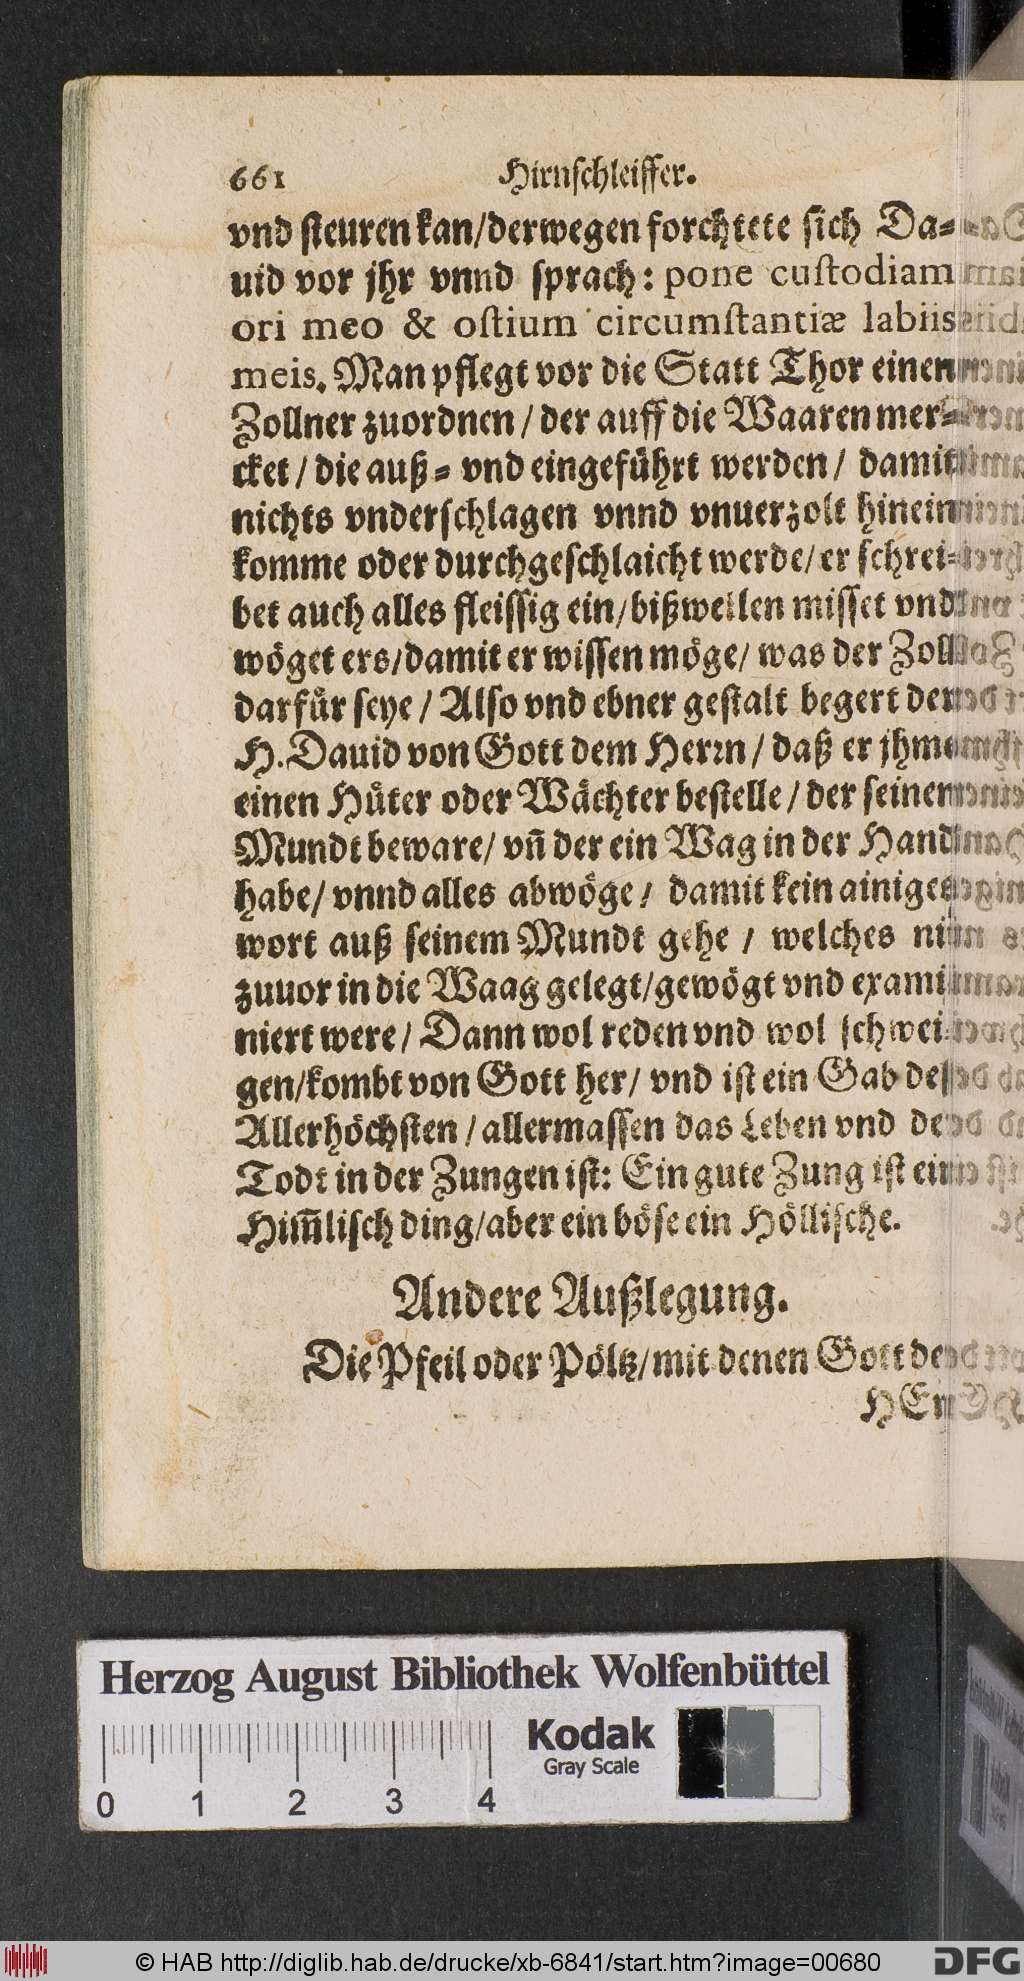 661 Hirnschleiffer.
vnd steuren kan/derwegen forchtete sich Da-
uid vor jhr vnnd sprach: pone custodiam
ori meo & ostium circumstantiæ labiis
meis. Man pflegt vor die Statt Thor einen
Zollner zuordnen / der auff die Waaren mer-
cket / die auß- vnd eingeführt werden / damit
nichts vnderschlagen vnnd vnuerzolt hinein
komme oder durchgeschlaicht werde/ er schrei-
bet auch alles fleissig ein/ bißweilen misset vnd
wöget ers/damit er wissen möge/ was der Zoll
darfür seye / Also vnd ebner gestalt begert der
H. Dauid von Gott dem Herrn / daß er jhme
einen Hüter oder Wächter bestelle / der seinen
Mundt beware/ vñ der ein Wag in der Hand
habe/ vnnd alles abwöge / damit kein ainiges
wort auß seinem Mundt gehe / welches nit
zuuor in die Waag gelegt/gewögt vnd exami-
niert were/ Dann wol reden vnd wol schwei-
gen/kombt von Gott her/ vnd ist ein Gab deß
Allerhöchsten / allermassen das Leben vnd der
Todt in der Zungen ist: Ein gute Zung ist ein
Him̃lisch ding/aber ein böse ein Höllische.
Andere Außlegung.
Die Pfeil oder Pöltz/mit denen Gott der
HErr
Herzog August Bibliothek Wolfenbüttel
Kodak
Gray Scale
0 1 2 3 4
© HAB http://diglib.hab.de/drucke/xb-6841/start.htm?image=00680
DFG